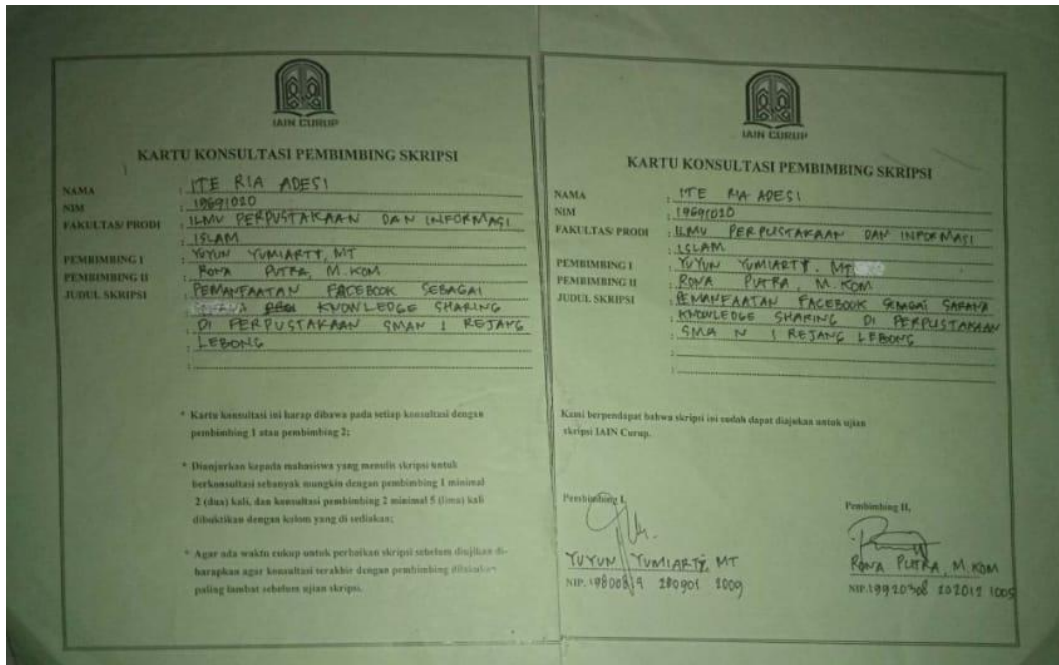 IAIN CURUP
KARTU KONSULTASI PEMBIMBING SKRIPSI
NAMA : ITE RIA ADESI
NIM : 19691020
FAKULTAS/ PRODI : ILMU PERPUSTAKAAN DAN INFORMASI
: ISLAM
PEMBIMBING I : YUYUN YUMIARTY, MT
PEMBIMBING II : RONA PUTRA, M.KOM
JUDUL SKRIPSI : PEMANFAATAN FACEBOOK SEBAGAI
: KNOWLEDGE SHARING
: DI PERPUSTAKAAN SMAN 1 REJANG
: LEBONG
:
* Kartu konsultasi ini harap dibawa pada setiap konsultasi dengan
pembimbing 1 atau pembimbing 2;
* Dianjurkan kepada mahasiswa yang menulis skripsi untuk
berkonsultasi sebanyak mungkin dengan pembimbing 1 minimal
2 (dua) kali, dan konsultasi pembimbing 2 minimal 5 (lima) kali
dibuktikan dengan kolom yang di sediakan;
* Agar ada waktu cukup untuk perbaikan skripsi sebelum diujikan di-
harapkan agar konsultasi terakhir dengan pembimbing dilakukan
paling lambat sebelum ujian skripsi.
IAIN CURUP
KARTU KONSULTASI PEMBIMBING SKRIPSI
NAMA : ITE RIA ADESI
NIM : 19691020
FAKULTAS/ PRODI : ILMU PERPUSTAKAAN DAN INFORMASI
: ISLAM
PEMBIMBING I : YUYUN YUMIARTY, MT
PEMBIMBING II : RONA PUTRA, M.KOM
JUDUL SKRIPSI : PEMANFAATAN FACEBOOK SEBAGAI SARANA
: KNOWLEDGE SHARING DI PERPUSTAKAAN
: SMA N 1 REJANG LEBONG
:
:
Kami berpendapat bahwa skripsi ini sudah dapat diajukan untuk ujian
skripsi IAIN Curup.
Pembimbing I,
YUYUN YUMIARTY, MT
NIP. 19800819 200901 2009
Pembimbing II,
RONA PUTRA, M.KOM
NIP.19920308 202012 1005